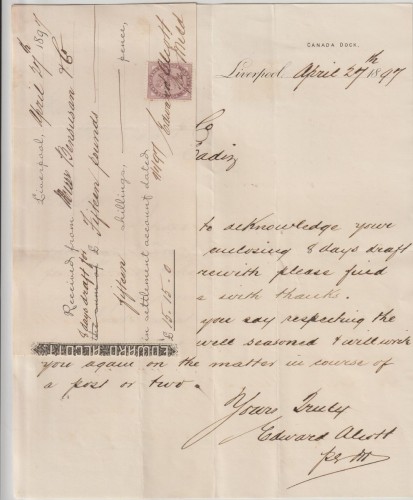 CANADA DOCK.
Liverpool, April 27th 1897
Co
Cadiz
to acknowledge your
enclosing 8 days draft
herewith please find
s with thanks.
you say respecting the
well seasoned & will write
you again on the matter in course of
a post or two.
Yours Truly
Edward Alcott
Liverpool, April 27th 1897
Received from Messrs Bensusan & Co
8 days draft for
£ Fifteen pounds
fifteen shillings, pence,
in settlement account dated
£ 15.15.0
Edward Alcott
EDWARD ALCOTT